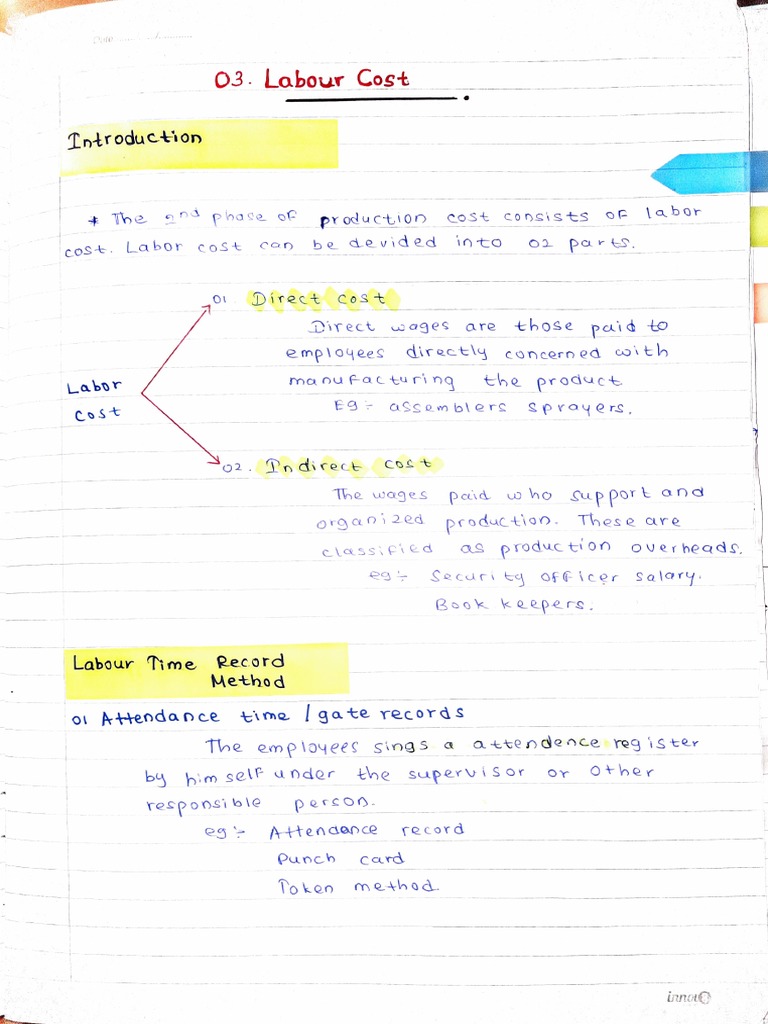 03. Labour Cost
Introduction
* The 2nd phase of production cost consists of labor
cost. Labor cost can be devided into 02 parts.
01 Direct cost
Direct wages are those paid to
employees directly concerned with
manufacturing the product
Eg :- assemblers sprayers.
Labor
cost
02. Indirect cost
The wages paid who support and
organized production. These are
classified as production overheads.
eg :- Security officer salary.
Book keepers.
Labour Time Record
Method
01 Attendance time / gate records
The employees sings a attendence register
by him self under the supervisor or other
responsible person.
eg :- Attendance record
Punch card
Token method.